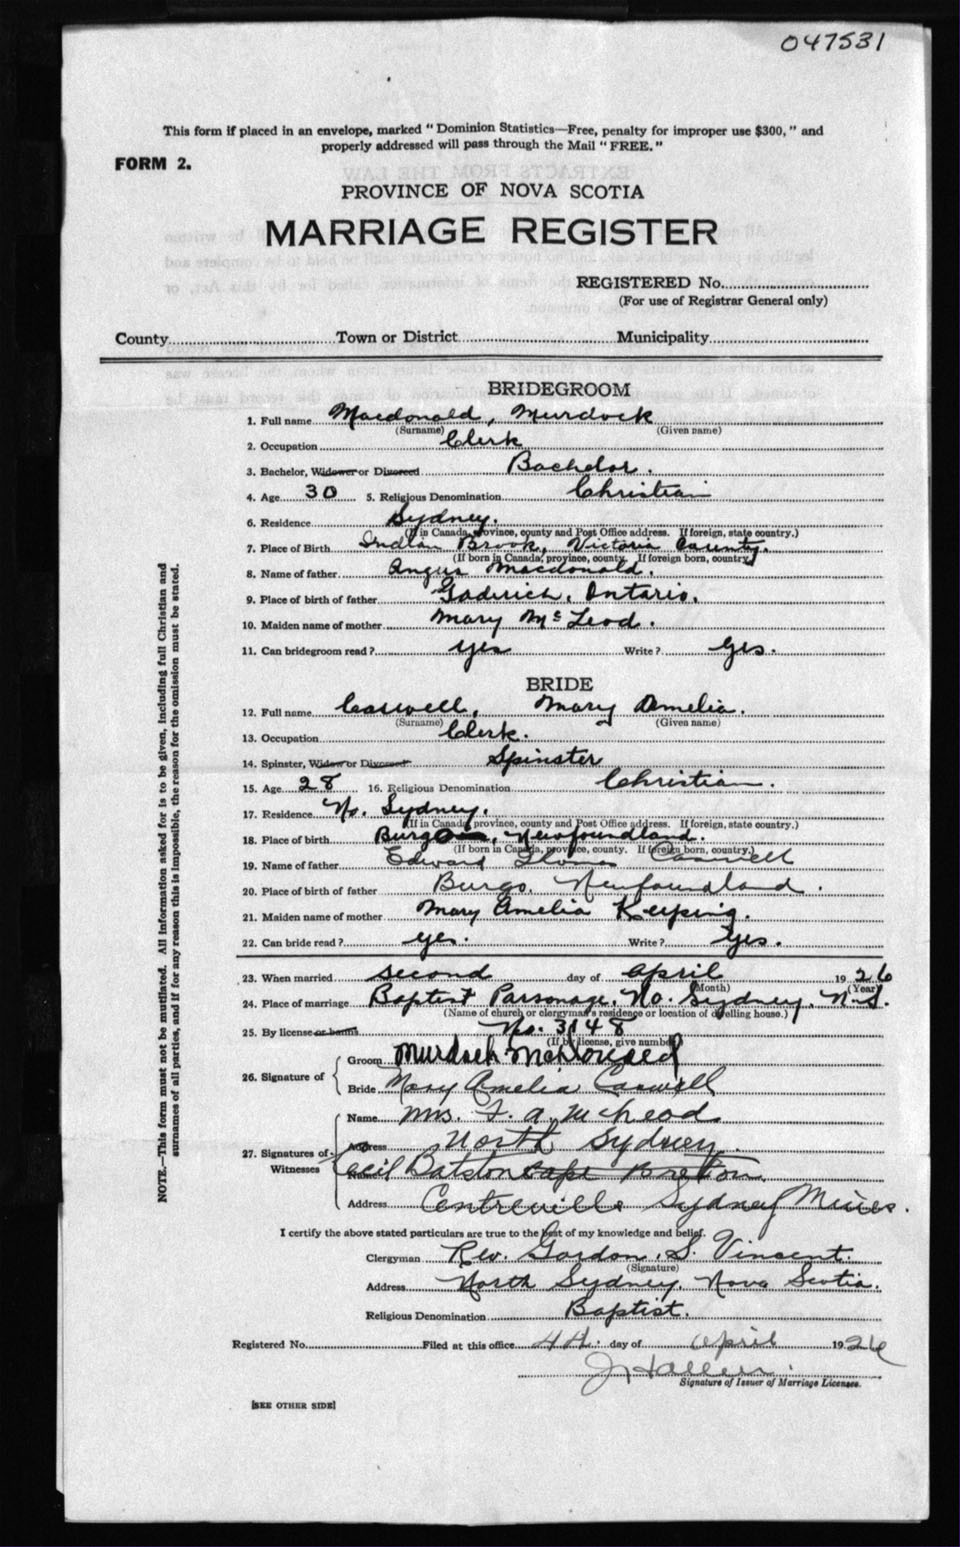 047531
This form if placed in an envelope, marked "Dominion Statistics—Free, penalty for improper use $300," and
properly addressed will pass through the Mail "FREE."
FORM 2.
PROVINCE OF NOVA SCOTIA
MARRIAGE REGISTER
REGISTERED No.
(For use of Registrar General only)
County Town or District Municipality
BRIDEGROOM
1. Full name Macdonald, Murdock
(Surname) (Given name)
2. Occupation Clerk
3. Bachelor, Widower or Divorced Bachelor.
4. Age 30 5. Religious Denomination Christian
6. Residence Sydney.
(If in Canada, province, county and Post Office address. If foreign, state country.)
7. Place of Birth Indian Brook, Victoria County.
(If born in Canada, province, county. If foreign born, country)
8. Name of father Angus Macdonald.
9. Place of birth of father Goderich, Ontario.
10. Maiden name of mother Mary McLeod.
11. Can bridegroom read? yes Write? Yes.
BRIDE
12. Full name Caswell, Mary Amelia.
(Surname) (Given name)
13. Occupation Clerk.
14. Spinster, Widow or Divorced Spinster
15. Age 28 16. Religious Denomination Christian.
17. Residence No. Sydney.
(If in Canada, province, county and Post Office address. If foreign, state country.)
18. Place of birth Burgo, Newfoundland.
(If born in Canada, province, county. If foreign born, country.)
19. Name of father Edward Thomas Caswell
20. Place of birth of father Burgo, Newfoundland.
21. Maiden name of mother Mary Amelia Keeping.
22. Can bride read? yes. Write? Yes.
23. When married second day of April 1926
(Month) (Year)
24. Place of marriage Baptist Parsonage, No. Sydney, N.S.
(Name of church or clergyman's residence or location of dwelling house.)
25. By license or banns No. 3148
(If by license, give number)
26. Signature of
Groom Murdoch McDonald
Bride Mary Amelia Caswell
27. Signatures of Witnesses
Name Mrs. F. A. McLeod
Address North Sydney.
Name Cecil Batston Cape Breton
Address Centreville Sydney Mines.
I certify the above stated particulars are true to the best of my knowledge and belief.
Clergyman Rev. Gordon. S. Vincent.
(Signature)
Address North Sydney, Nova Scotia.
Religious Denomination Baptist.
Registered No. Filed at this office 4th day of April 1926
Signature of Issuer of Marriage Licenses.
[SEE OTHER SIDE]
NOTE.—This form must not be mutilated. All information asked for is to be given, including full Christian and
surnames of all parties, and if for any reason this is impossible, the reason for the omission must be stated.